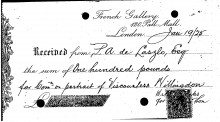 French Gallery,
120 Pall Mall,
London, Jan 19/25
Received from P. A. de Laszlo, Esq
the sum of One hundred pounds
for Comn. on portrait of Viscountess Willingdon